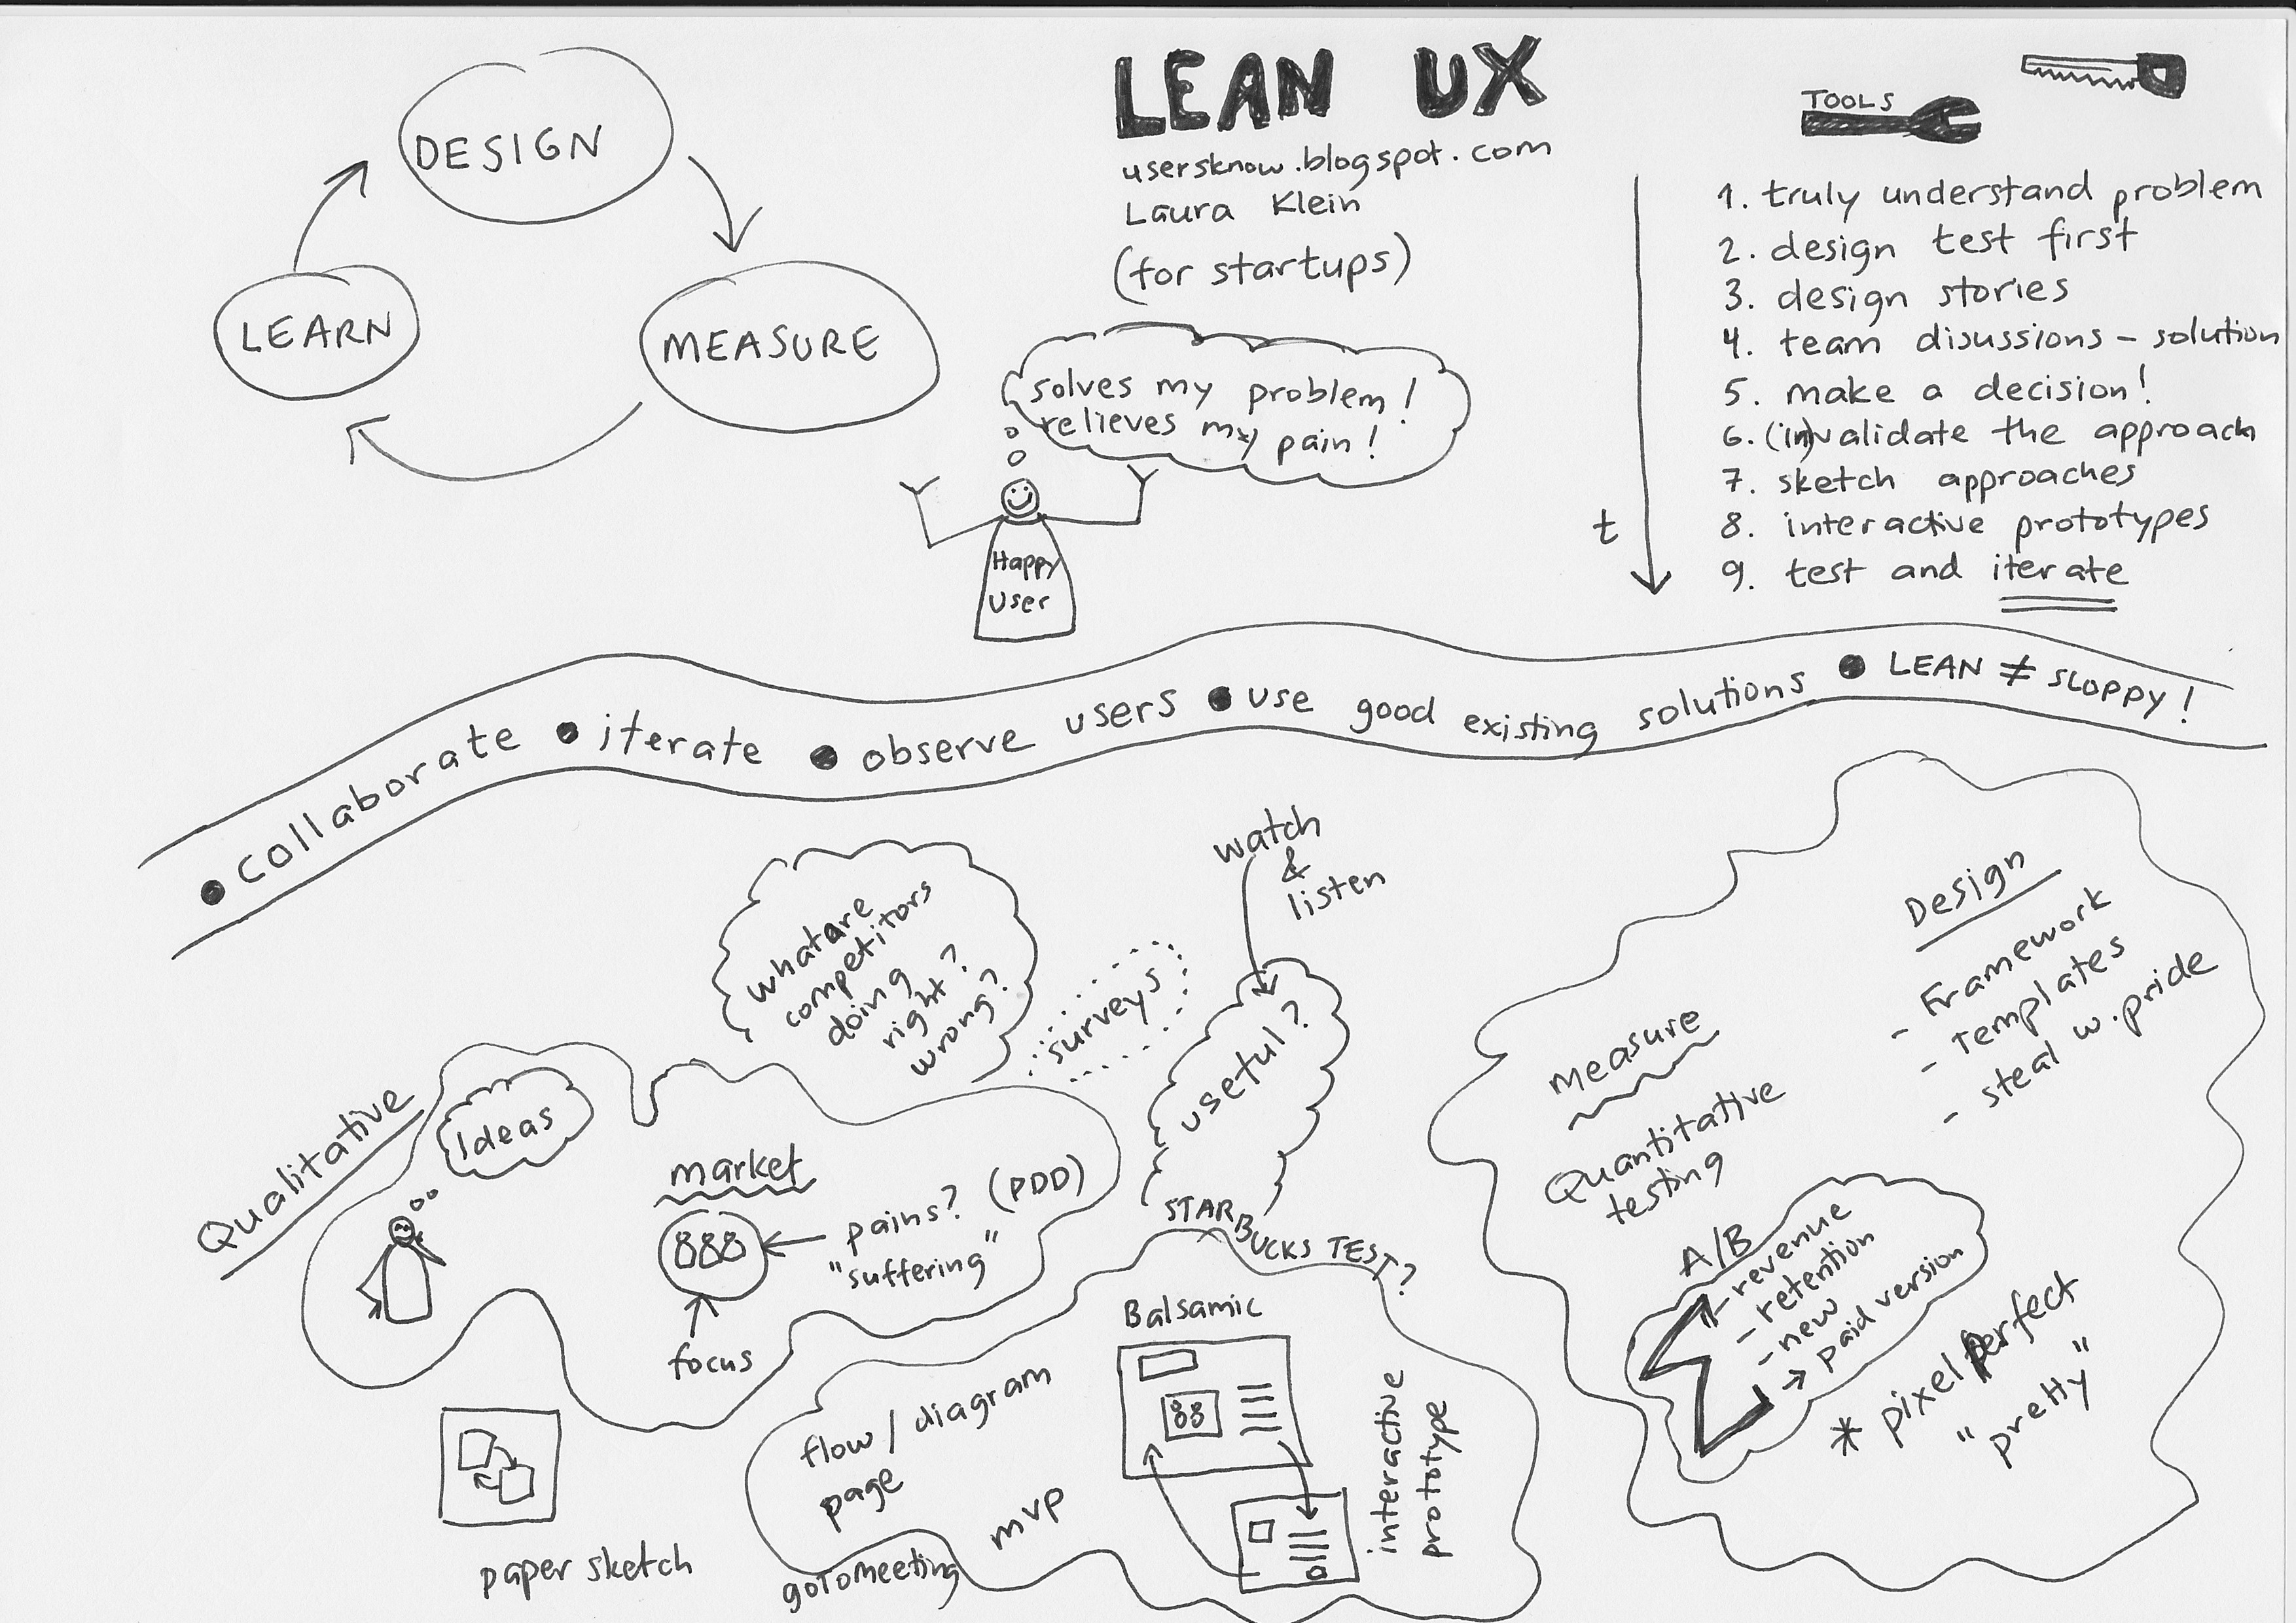 LEAN UX
usersknow.blogspot.com
Laura Klein
(for startups)
DESIGN
MEASURE
LEARN
solves my problem!
relieves my pain!
Happy
User
TOOLS
1. truly understand problem
2. design test first
3. design stories
4. team disussions - solution
5. make a decision!
6. (in)validate the approach
7. sketch approaches
8. interactive prototypes
9. test and iterate
t
• collaborate • iterate • observe users • use good existing solutions • LEAN ≠ SLOPPY!
Qualitative
Ideas
market
pains? (PDD)
"suffering"
focus
what are
competitors
doing
right?
wrong?
surveys
watch
&
listen
useful?
STARBUCKS TEST?
paper sketch
flow / diagram
page
goToMeeting
mvp
Balsamic
interactive
prototype
Measure
Quantitative
testing
A/B
- revenue
- retention
- new
→ paid version
* pixel perfect
"pretty"
Design
- Framework
- Templates
- steal w. pride